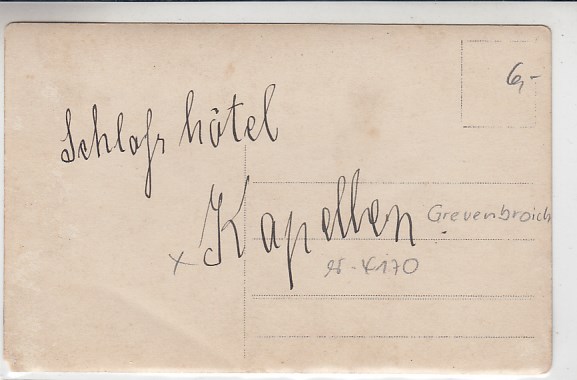 6,-
Schloss hôtel
Kapellen
Grevenbroich
x